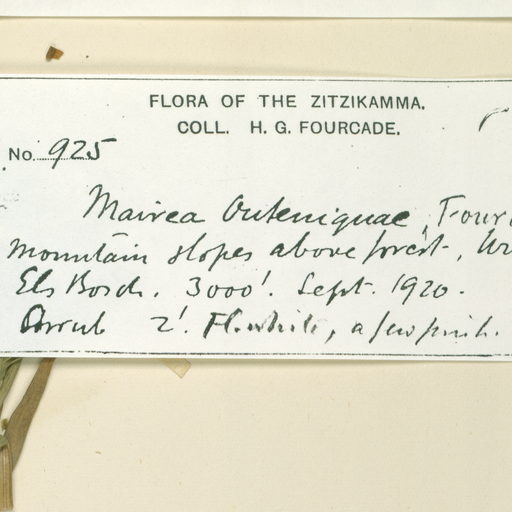 FLORA OF THE ZITZIKAMMA.
COLL. H. G. FOURCADE.
No. 925
Mairea Outeniquae, Four
mountain slopes above forest,
Els Bosch. 3000'. Sept. 1920.
Shrub 2'. Fl. white, a few pink.